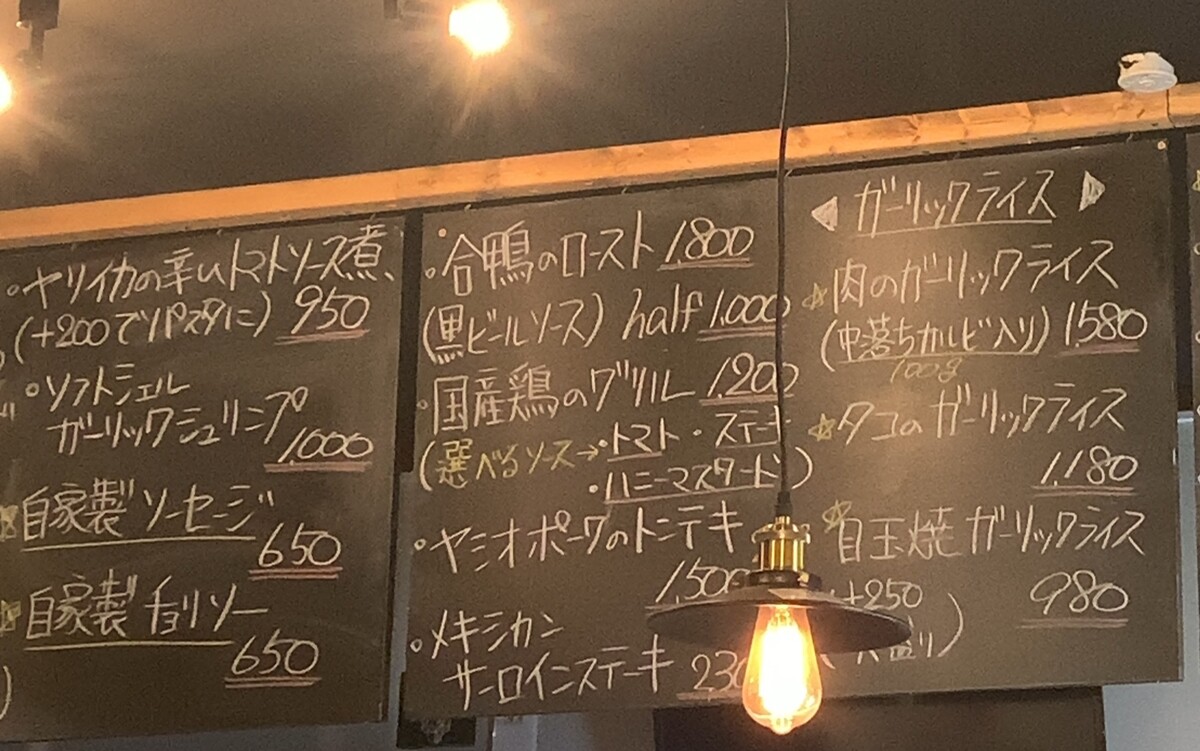 ・ヤリイカの辛いトマトソース煮、
(+200でパスタに) 950
・ソフトシェル
ガーリックシュリンプ
1,000
☆自家製ソーセージ
650
☆自家製チョリソー
650
・合鴨のロースト 1,800
(黒ビールソース) half 1,000
・国産鶏のグリル 1,200
(選べるソース→・トマト・ステーキ
・ハニーマスタード)
・ヤシオポークのトンテキ
1,500
・メキシカン
サーロインステーキ
ガーリックライス
☆肉のガーリックライス
(中落ちカルビ入り) 1,580
100g
☆タコのガーリックライス
1,180
☆目玉焼ガーリックライス
+250
980
)